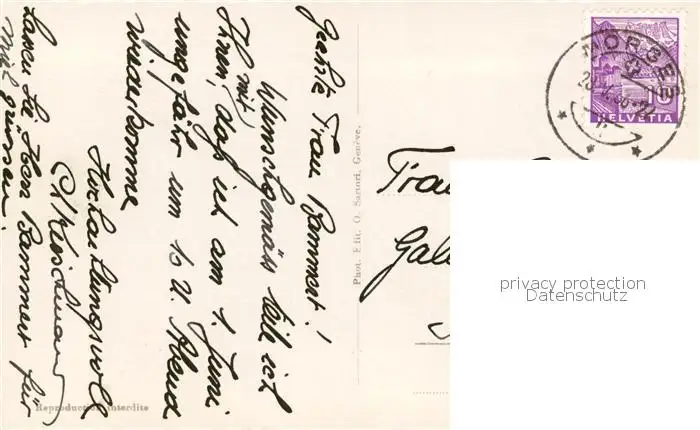 Geehte Frau Bammert!
Wunschgemäss teile ich
Ihnen mit, daß ich am 1. Juni
ungefähr um 10 U. Abend
wiederkomme
Hochachtungsvoll
Lassen Sie Herr Bammert für
mich grüssen.
Reproduction interdite
Phot. Edit. O. Sartori, Genève.
MORGES
HELVETIA
10
Frau
privacy protection
Datenschutz